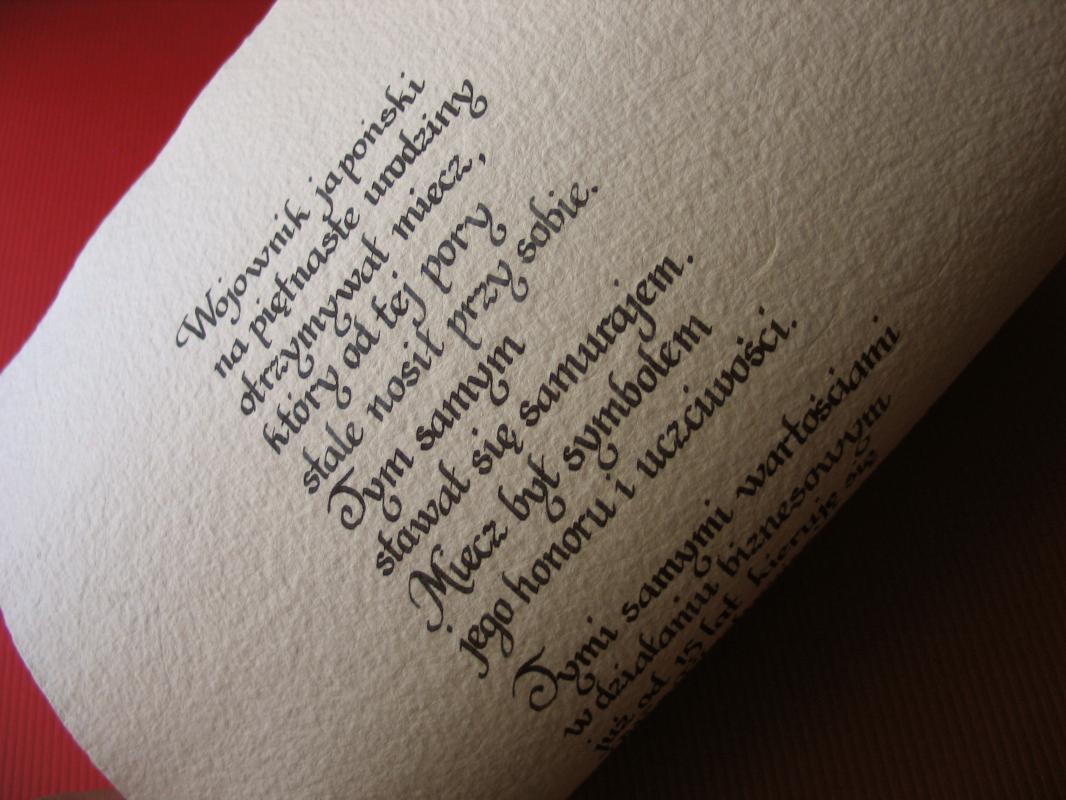 Wojownik japoński
na piętnaste urodziny
otrzymywał miecz,
który od tej pory
stale nosił przy sobie.
Tym samym
stawał się samurajem.
Miecz był symbolem
jego honoru i uczciwości.
Tymi samymi wartościami
w działaniu biznesowym
już od 15 lat kieruje się